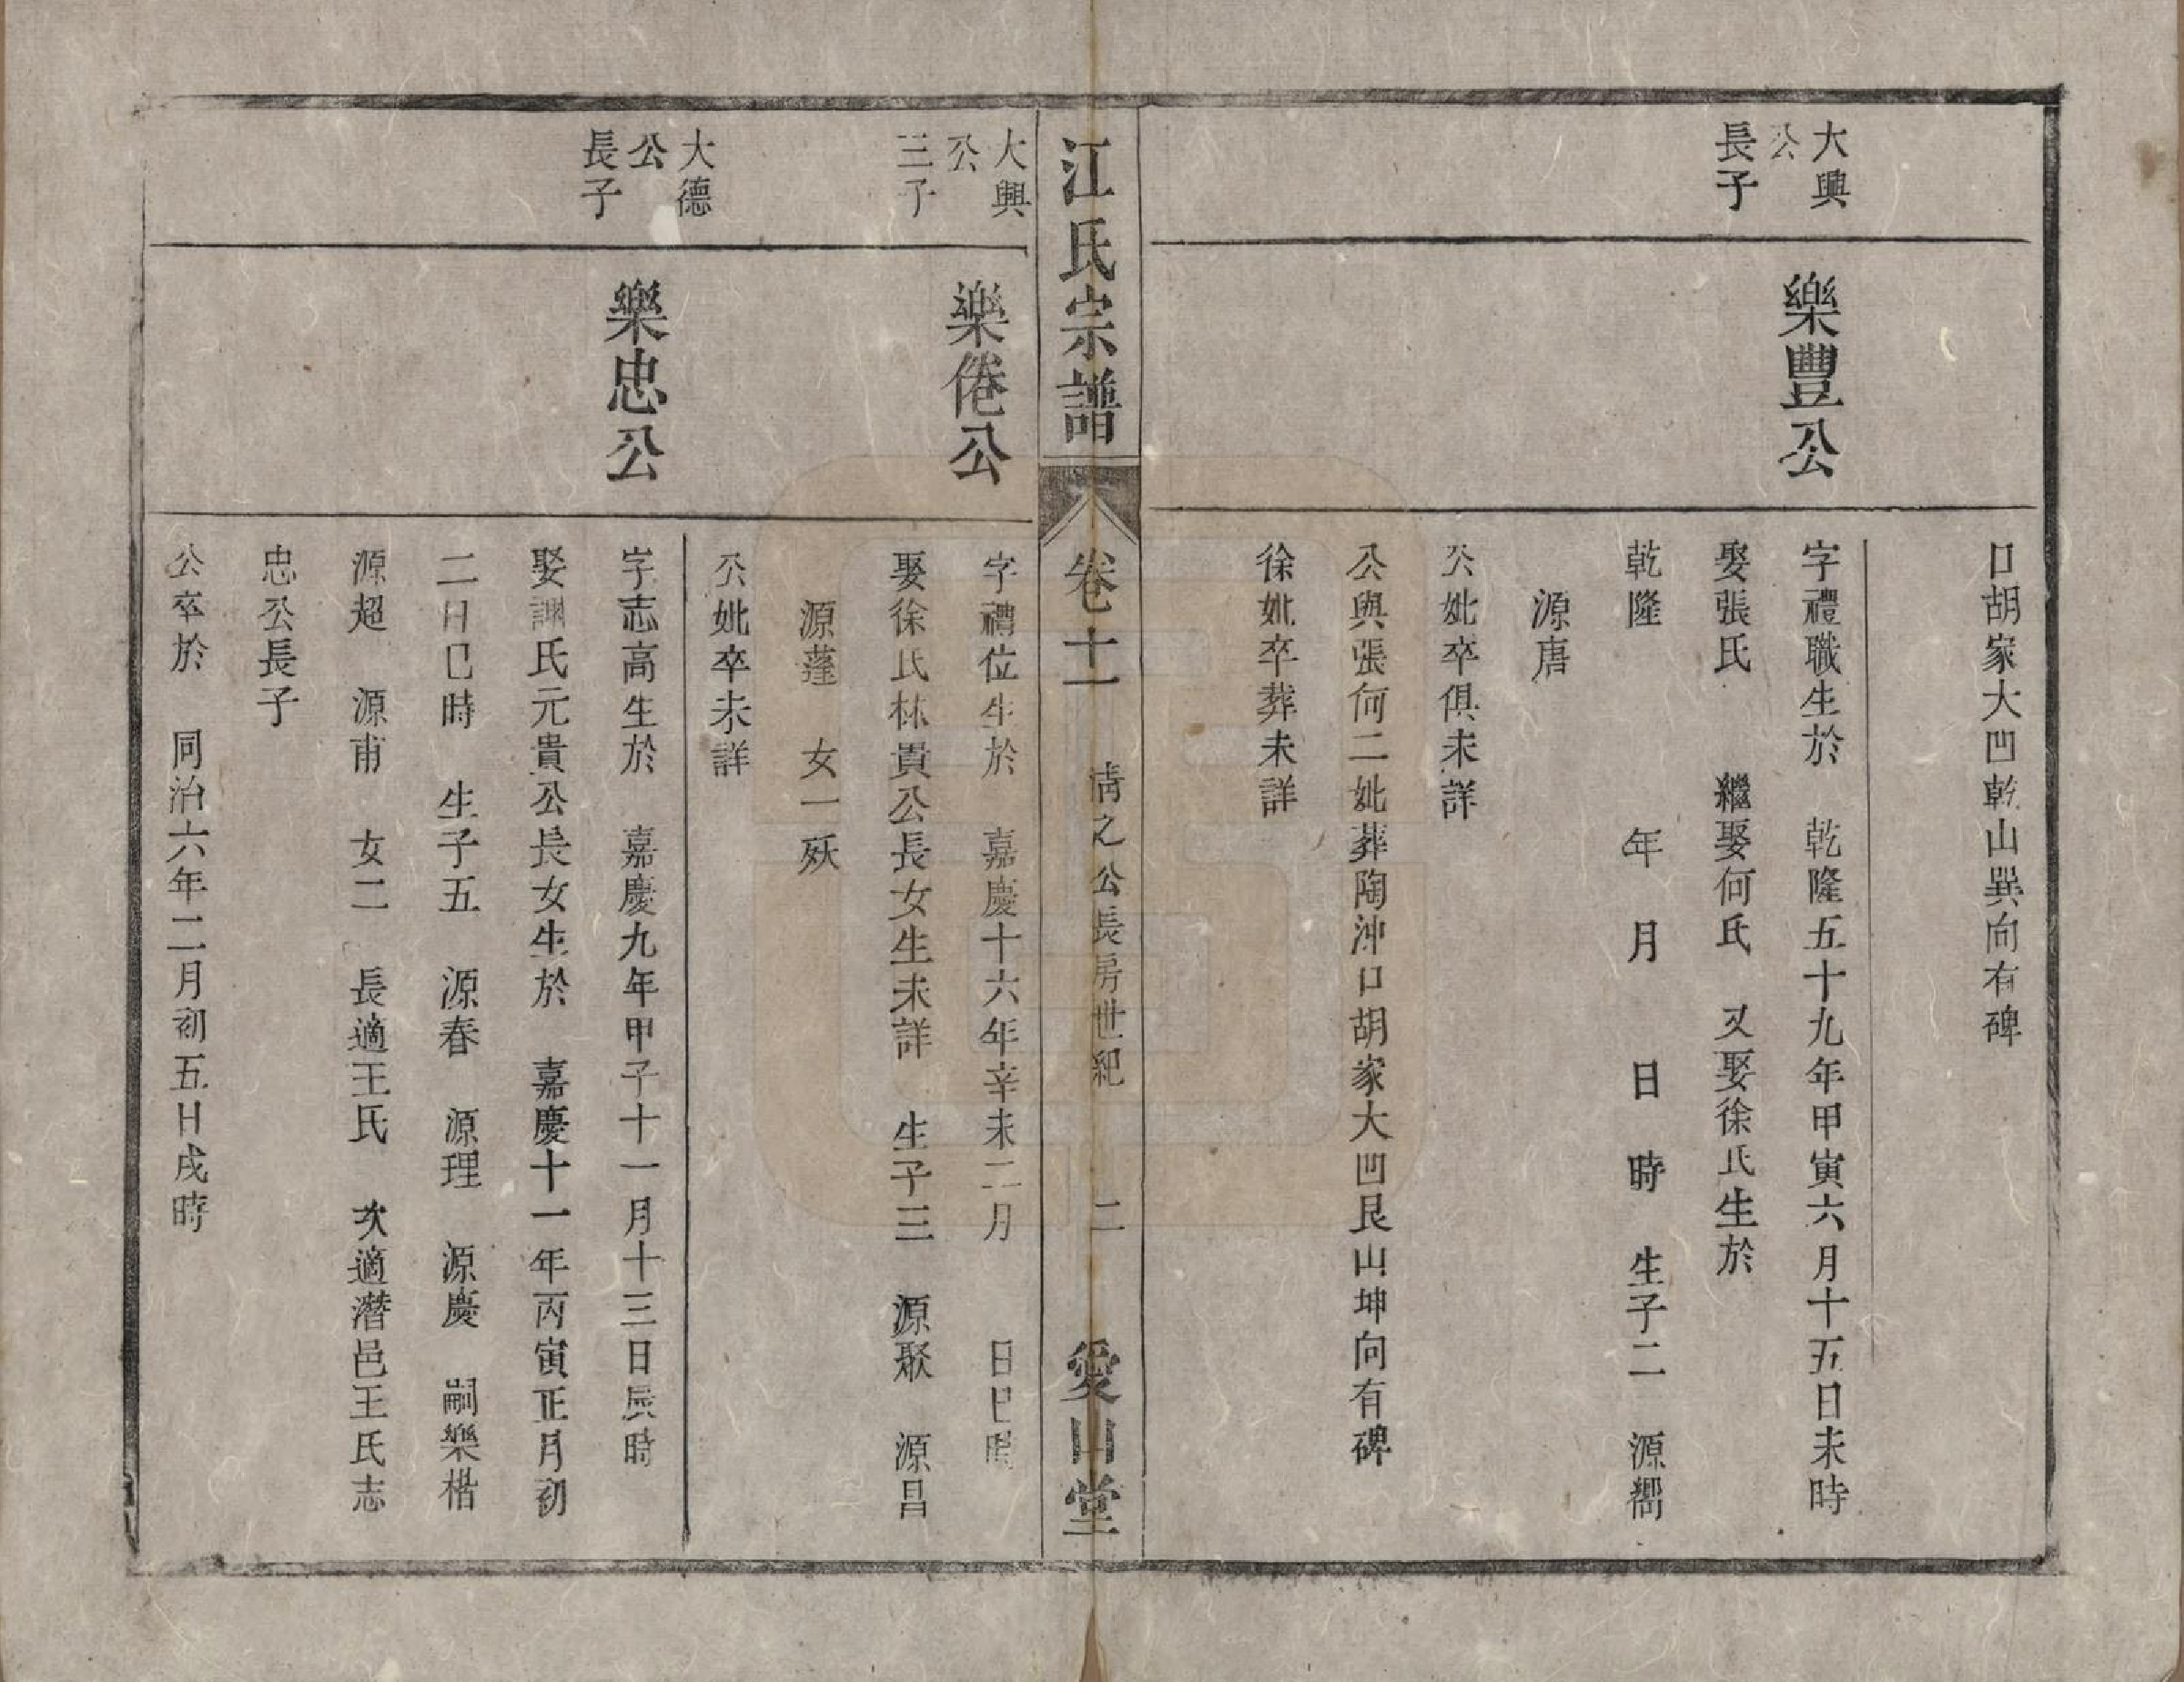 口胡家大凹乾山巽向有碑
大興
公
長子
樂豐公
字禮職生於　乾隆五十九年甲寅六月十五日未時
娶張氏　繼娶何氏　又娶徐氏生於
乾隆　年　月　日　時　生子二　源嚮
源唐
公妣卒俱未詳
公與張何二妣葬陶沖口胡家大凹艮山坤向有碑
徐妣卒葬未詳
江氏宗譜
卷十一　清之公長房世紀　二　愛日堂
大興
公
三子
樂倦公
字禮位生於　嘉慶十六年辛未二月　日巳時
娶徐氏林貴公長女生未詳　生子三　源聚　源昌
源蓬　女一殀
公妣卒未詳
大德
公
長子
樂忠公
字志高生於　嘉慶九年甲子十一月十三日辰時
娶氏元貴公長女生於　嘉慶十一年丙寅正月初
二日巳時　生子五　源春　源理　源慶　嗣樂楷
源超　源甫　女二　長適王氏　次適潛邑王氏志
忠公長子
公卒於　同治六年二月初五日戌時